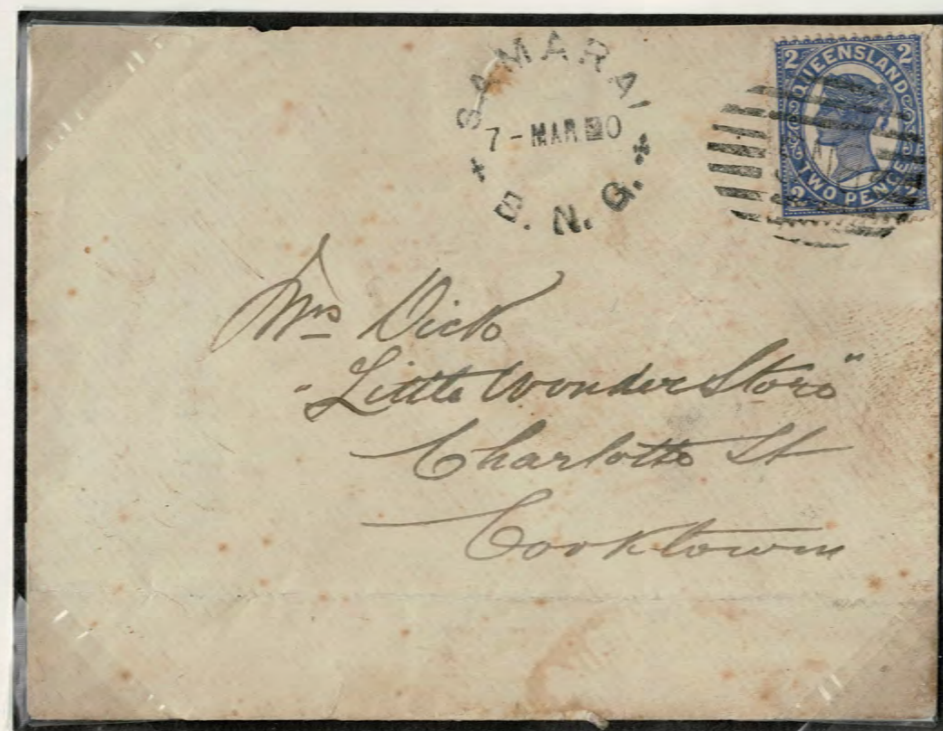 SAMARAI
7-MAR 0
B.N.G.
2 QUEENSLAND 2
TWO PENCE
Mrs Dick
"Little Wonder Store"
Charlotte St
Cooktown